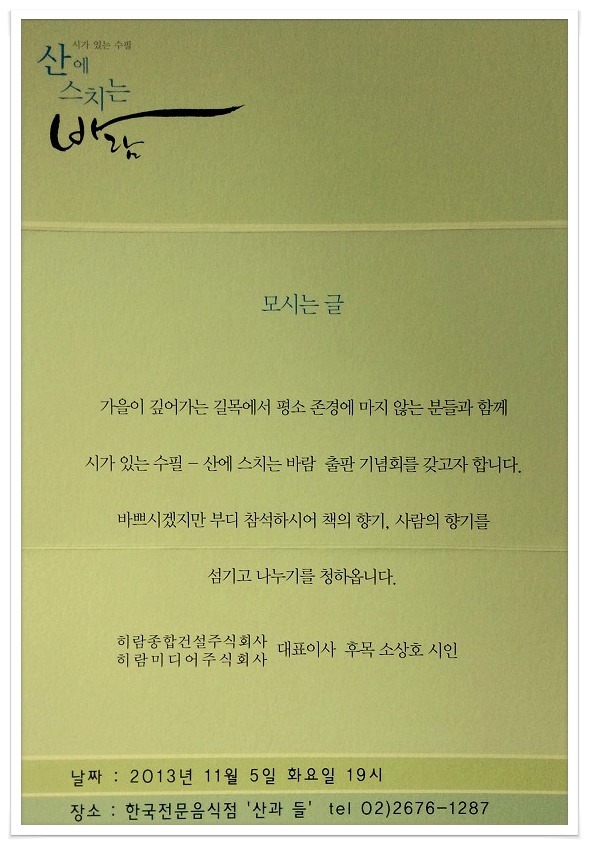 시가 있는 수필
산에
스치는
바람
모시는 글
가을이 깊어가는 길목에서 평소 존경에 마지 않는 분들과 함께
시가 있는 수필 - 산에 스치는 바람 출판 기념회를 갖고자 합니다.
바쁘시겠지만 부디 참석하시어 책의 향기, 사람의 향기를
섬기고 나누기를 청하옵니다.
히람종합건설주식회사
히람미디어주식회사 대표이사 후목 소상호 시인
날짜 : 2013년 11월 5일 화요일 19시
장소 : 한국전문음식점 '산과 들' tel 02)2676-1287